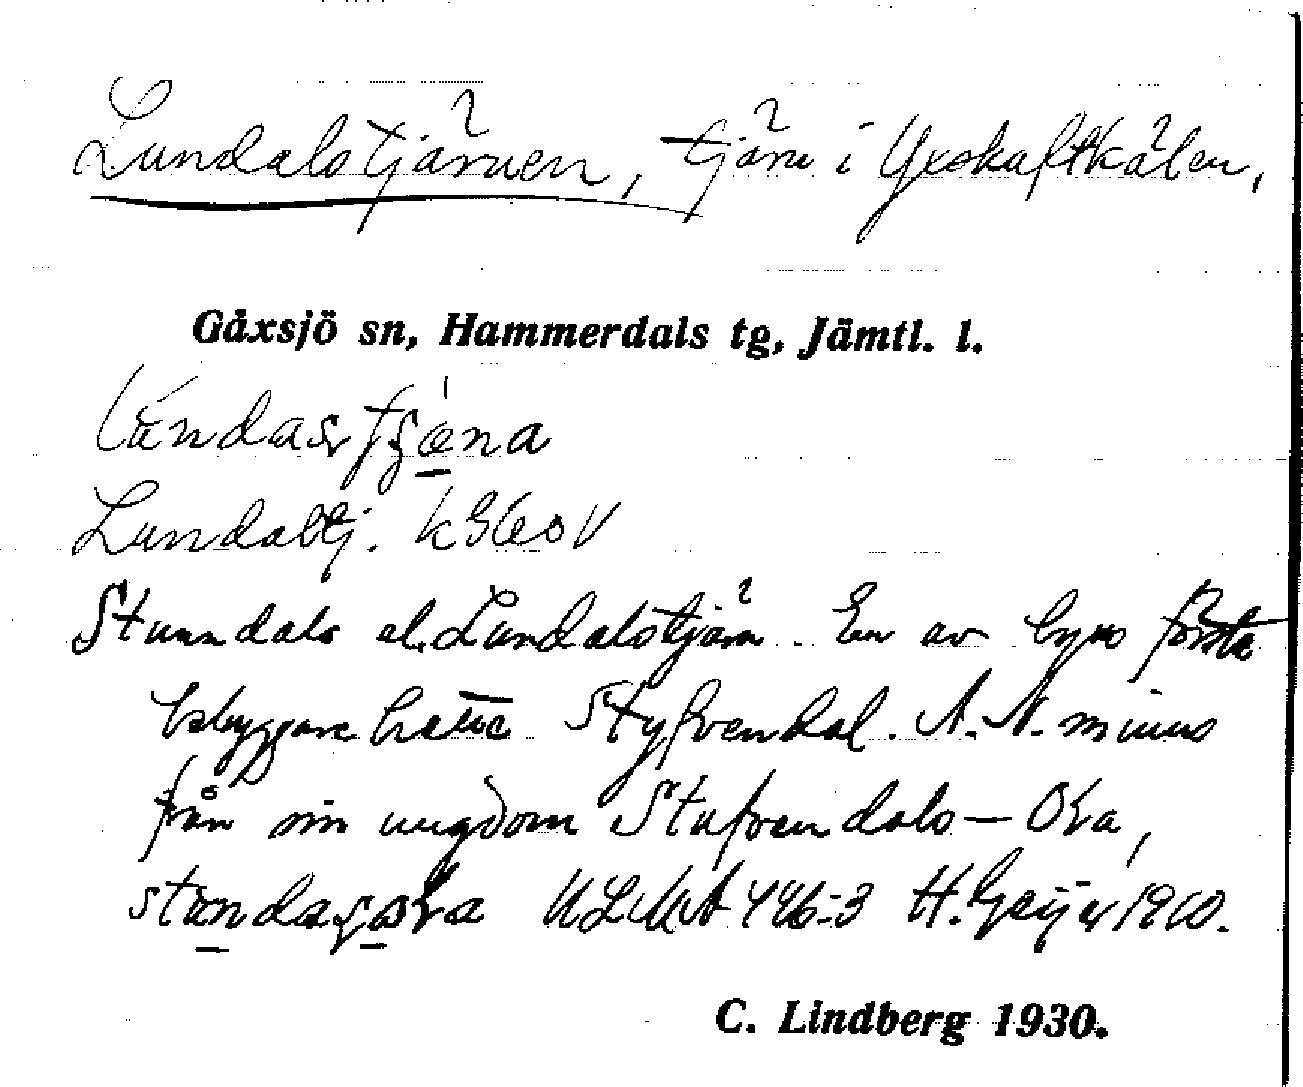 Lundalstjärnen, tjärn i Yxskaftkälen,
Gåxsjö sn, Hammerdals tg, Jämtl. l.
Lundalstj. k360 V
Stunndals el. Lundalstjärn. En av byns första
bebyggare hette Styfvendal. A. N. minns
från sin ungdom Stufvendals–Ora,
ULMA 446:3 H. Geijer 1910.
C. Lindberg 1930.